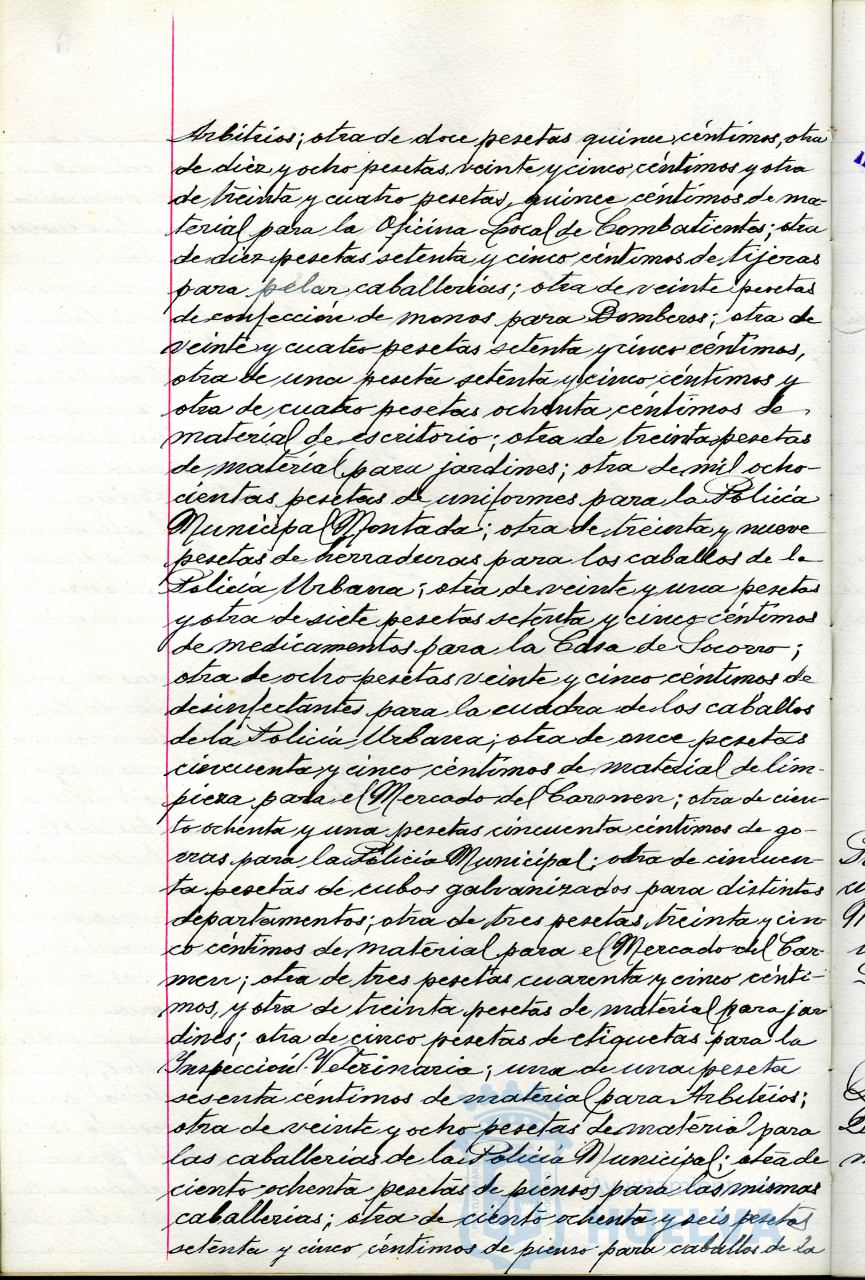 Arbitrios; otra de doce pesetas quince céntimos, otra
de diez y ocho pesetas veinte y cinco céntimos y otra
de treinta y cuatro pesetas, quince céntimos de ma-
terial para la Oficina Local de Combatientes; otra
de diez pesetas setenta y cinco céntimos de tijeras
para pelar caballerías; otra de veinte pesetas
de confección de monos para Bomberos; otra de
veinte y cuatro pesetas setenta y cinco céntimos,
otra de una peseta setenta y cinco céntimos y
otra de cuatro pesetas ochenta céntimos de
material de escritorio; otra de treinta pesetas
de material para jardines; otra de mil ocho-
cientas pesetas de uniformes para la Policía
Municipal Montada; otra de treinta y nueve
pesetas de herraduras para los caballos de la
Policía Urbana; otra de veinte y una pesetas
y otra de siete pesetas setenta y cinco céntimos
de medicamentos para la Casa de Socorro;
otra de ocho pesetas veinte y cinco céntimos de
desinfectantes para la cuadra de los caballos
de la Policía Urbana; otra de once pesetas
cincuenta y cinco céntimos de material de lim-
pieza para el Mercado del Carmen; otra de cien-
to ochenta y una pesetas cincuenta céntimos de go-
rras para la Policía Municipal; otra de cincuen-
ta pesetas de cubos galvanizados para distintos
departamentos; otra de tres pesetas, treinta y cin-
co céntimos de material para el Mercado del Car-
men; otra de tres pesetas cuarenta y cinco cénti-
mos, y otra de treinta pesetas de material para jar-
dines; otra de cinco pesetas de etiquetas para la
Inspección Veterinaria; una de una peseta
sesenta céntimos de material para Arbitrios;
otra de veinte y ocho pesetas de material para
las caballerías de la Policía Municipal; otra de
ciento ochenta pesetas de piensos para las mismas
caballerías; otra de ciento ochenta y seis pesetas
setenta y cinco céntimos de pienso para caballos de la
Ayuntamiento de
HUELVA